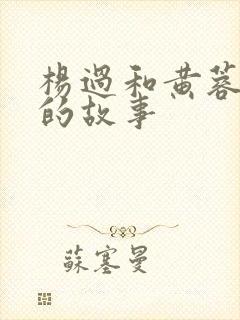 楊過和黃蓉
的故事
蘇塞曼